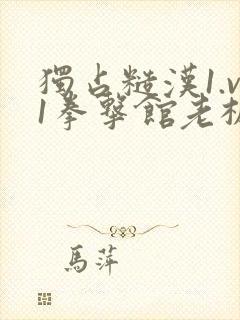 獨占糙漢1.v
1拳擊館老板
馬萍